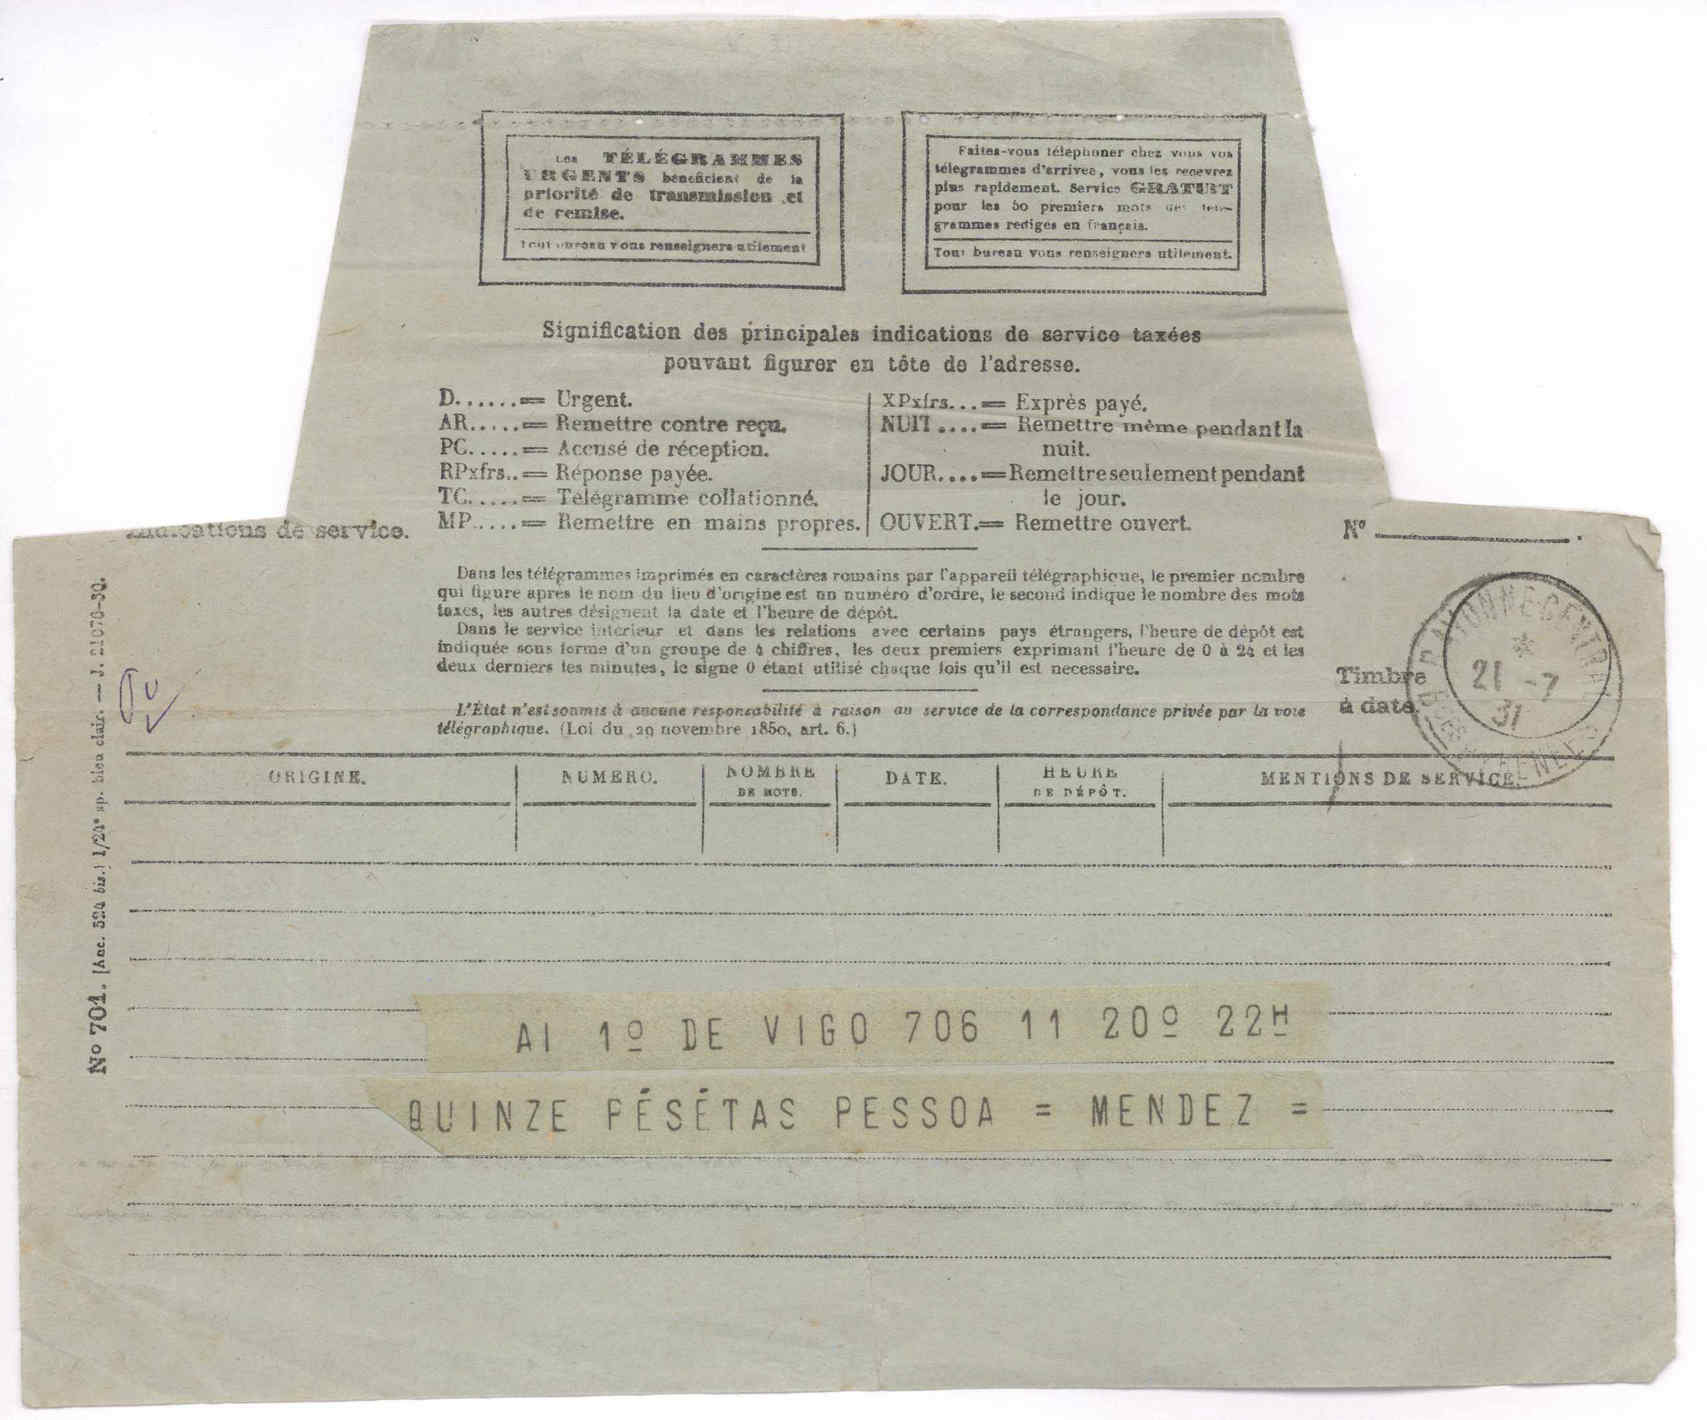 Les TÉLÉGRAMMES
URGENTS bénéficient de la
priorité de transmission et
de remise.
Tout bureau vous renseignera utilement
Faites-vous téléphoner chez vous vos
télégrammes d'arrivée, vous les recevrez
plus rapidement. Service GRATUIT
pour les 50 premiers mots des télé-
grammes rédigés en français.
Tout bureau vous renseignera utilement.
Signification des principales indications de service taxées
pouvant figurer en tête de l'adresse.
D......= Urgent.
AR.....= Remettre contre reçu.
PC.....= Accusé de réception.
RPxfrs..= Réponse payée.
TC.....= Télégramme collationné.
MP.....= Remettre en mains propres.
XPxfrs...= Exprès payé.
NUIT ....= Remettre même pendant la
nuit.
JOUR....= Remettre seulement pendant
le jour.
OUVERT.= Remettre ouvert.
Indications de service.
Nº
Dans les télégrammes imprimés en caractères romains par l'appareil télégraphique, le premier nombre
qui figure après le nom du lieu d'origine est un numéro d'ordre, le second indique le nombre des mots
taxés, les autres désignent la date et l'heure de dépôt.
Dans le service intérieur et dans les relations avec certains pays étrangers, l'heure de dépôt est
indiquée sous forme d'un groupe de 4 chiffres, les deux premiers exprimant l'heure de 0 à 24 et les
deux derniers les minutes, le signe 0 étant utilisé chaque fois qu'il est nécessaire.
L'État n'est soumis à aucune responsabilité à raison du service de la correspondance privée par la voie
télégraphique. (Loi du 29 novembre 1850, art. 6.)
Timbre
à date.
BAYONNE CENTRAL
21 -7
31
BSES PYRENEES
Nº 701. (Anc. 524 bis.) 1/24e up. bleu clair. — J. 21070-30.
ORIGINE.
NUMÉRO.
NOMBRE
DE MOTS.
DATE.
HEURE
DE DÉPÔT.
MENTIONS DE SERVICE.
AI 1º DE VIGO 706 11 20º 22H
QUINZE PÉSÉTAS PESSOA = MENDEZ =